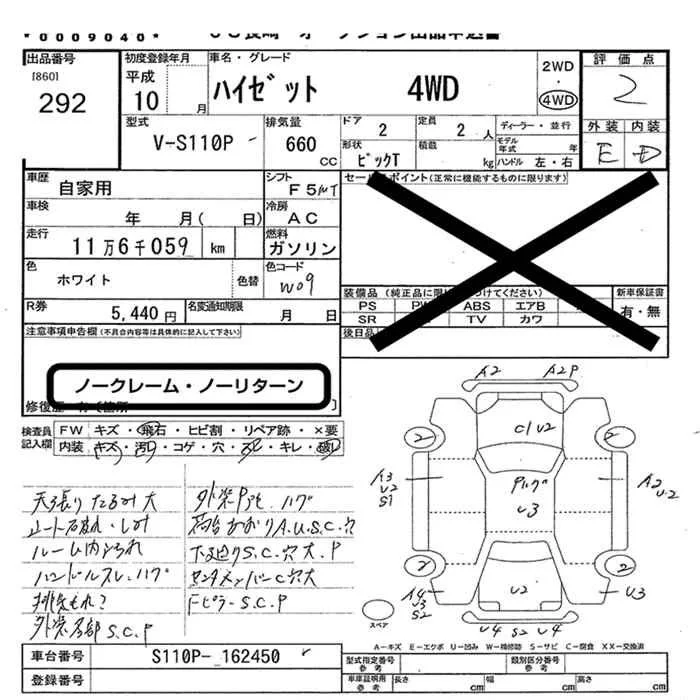 *0009040*
出品番号
[860]
292
初度登録年月
平成
10 月
車名・グレード
ハイゼット 4WD
2WD
・
4WD
評価点
2
外装 内装
E D
型式
V-S110P
排気量
660 cc
ドア 2
定員 2 人
形状
ピックT
積載 kg
ディーラー・並行
モデル年式 年
ハンドル 左・右
車歴
自家用
シフト
F5
車検
年 月( 日)
冷房
AC
走行
11万6千059 km
燃料
ガソリン
色
ホワイト
色替
色コード
W09
R券
5,440円
名変通知期限
月 日
セールスポイント(正常に機能するものに限ります)
PS ABS エアB
SR TV カワ
後日品
新車保証書
有・無
注意事項申告欄(不具合内容等は具体的に記入して下さい)
ノークレーム・ノーリターン
検査員記入欄
FW キズ・飛石・ヒビ割・リペア跡・×要
内装 キズ・汚れ・コゲ・穴・ズレ・キレ・破レ
天張りたるみ大
シート破れ・しみ
ルーム内汚れ
ハンドルスレ・ハゲ
排気もれ?
外装各部S.C.P
A.U.S.C.穴
下廻りS.C.穴大.P
C穴大
S.C.P
A2 A2P
C1U2
2 2
A3
U2
S1
U3
A2
U2
2 2
A4
U3
S2
U2
U3
U4 S2 U4
スペア
A-キズ E-エクボ U-凹み W-補修跡 S-サビ C-腐食 XX-交換済
車台番号 S110P-162450
登録番号
型式指定番号
参考
類別区分番号
参考
車庫証明用
参考
長さ cm
幅 cm
高さ cm